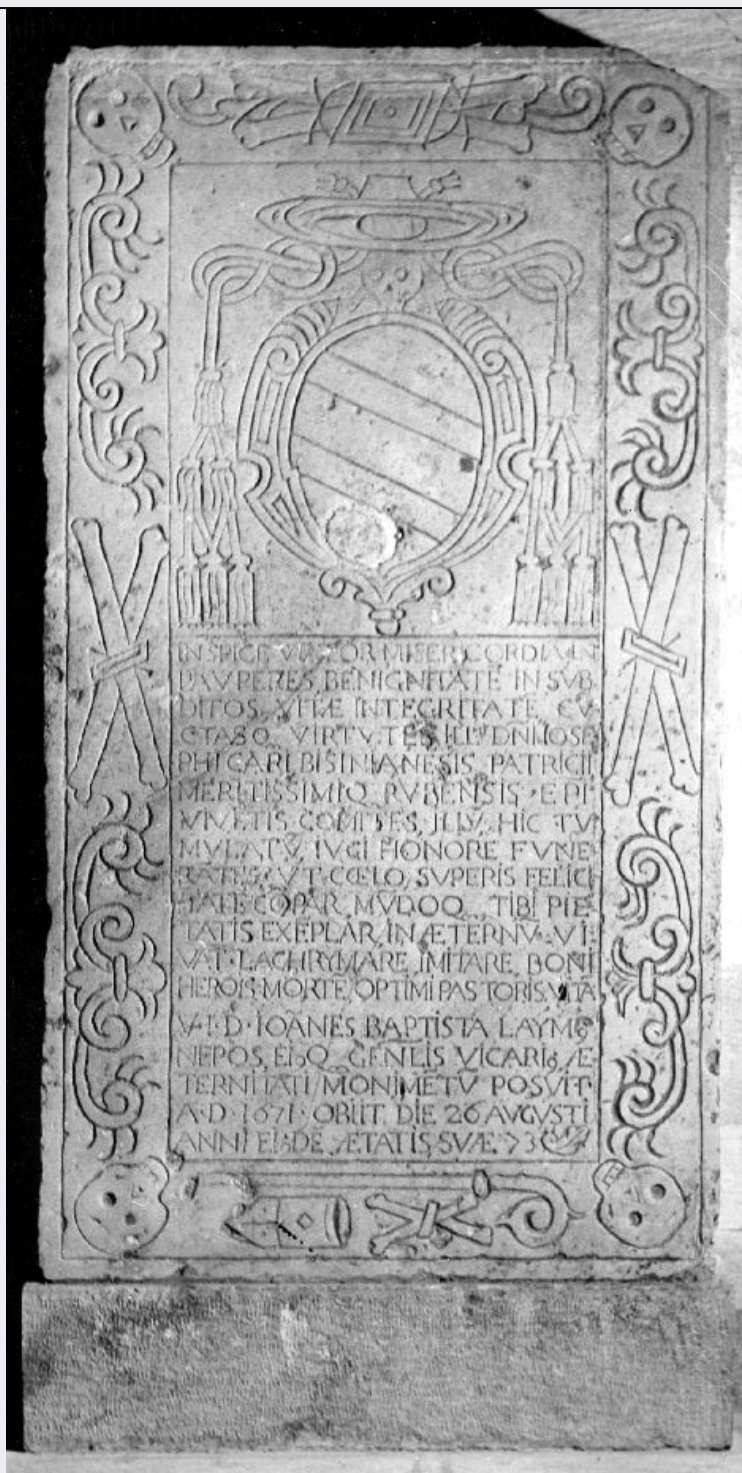 INSPICE VIATOR MISERICORDIA IN
PAVPERES, BENIGNITATE IN SVB-
DITOS, VITÆ INTEGRITATE, CV-
CTASQ VIRTVTES ILLᵐⁱ DNI IOSE
PHI CARI BISINIANESIS PATRICII
MERITISSIMIQ RVBENSIS EPI
VIVETIS COMITES, ILLV HIC TV
MVLATV̄ IVGI HONORE FVNE
RATES, VT COELO, SVPERIS FELICI
TATE COPAR, MVDOQ TIBI PIE
TATIS EXEPLAR, IN ÆTERNV VI-
VAT LACHRYMARE, IMITARE BONI
HEROIS MORTE, OPTIMI PASTORIS VITA
V·I·D·IOANES BAPTISTA LAYMꝰ
NEPOS, EIꝰQ GENLIS VICARIꝰ Æ
TERNITATI MONIMETV POSVIT
A·D·1671· OBIIT DIE 26 AVGVSTI
ANNI EIꝰDE ÆTATIS SVÆ 73